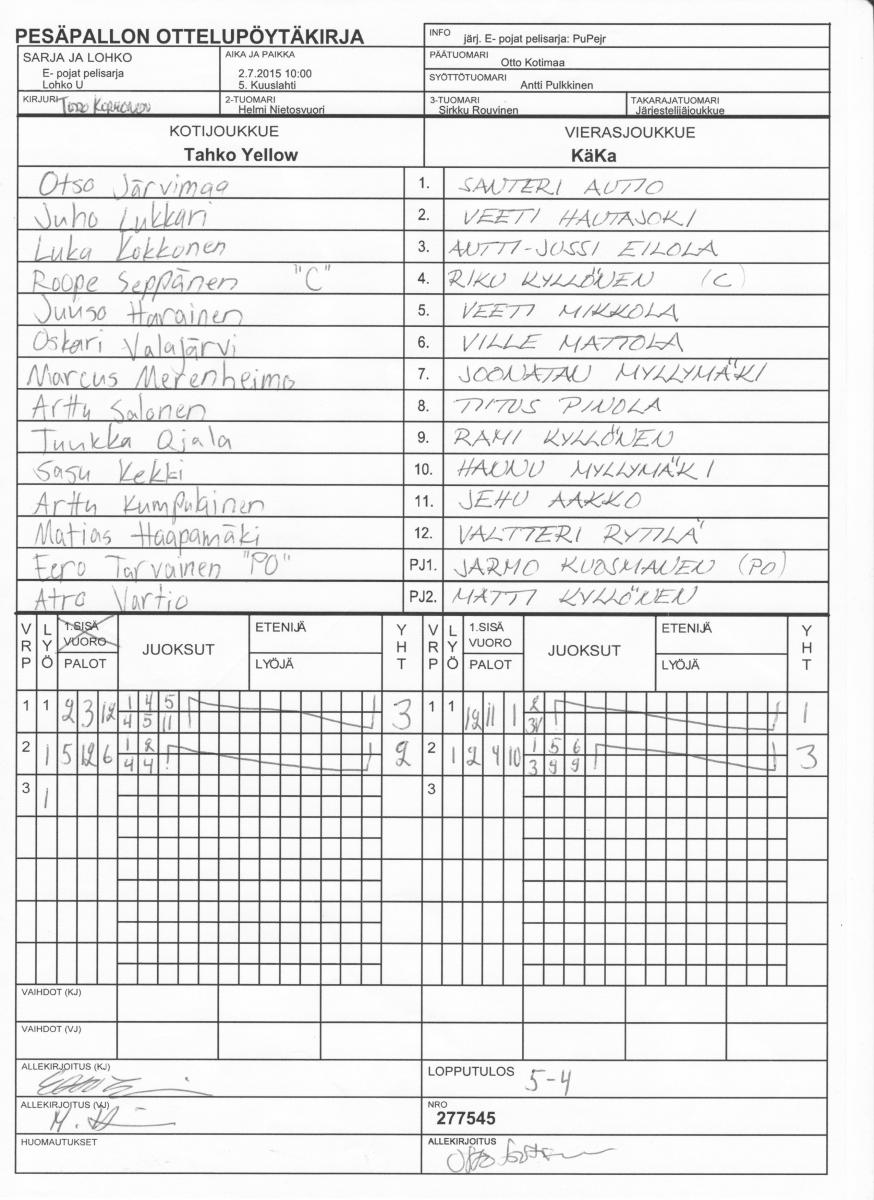 PESÄPALLON OTTELUPÖYTÄKIRJA
INFO järj. E- pojat pelisarja: PuPejr
SARJA JA LOHKO
E- pojat pelisarja
Lohko U
AIKA JA PAIKKA
2.7.2015 10:00
5. Kuuslahti
PÄÄTUOMARI Otto Kotimaa
SYÖTTÖTUOMARI Antti Pulkkinen
KIRJURI
2-TUOMARI
Helmi Nietosvuori
3-TUOMARI
Sirkku Rouvinen
TAKARAJATUOMARI
Järjestelijäjoukkue
KOTIJOUKKUE VIERASJOUKKUE
Tahko Yellow KäKa
Otso Järvimaa 1. SANTERI AUTIO
Juho Lukkari 2. VEETI HAUTAJOKI
Luka Kokkonen 3. ANTTI-JUSSI EILOLA
Roope Seppänen "C" 4. RIKU KYLLÖNEN (C)
Juuso Harainen 5. VEETI MIKKOLA
Oskari Valajärvi 6. VILLE MATTOLA
Marcus Merenheimo 7. JOONATAN MYLLYMÄKI
Arttu Salonen 8. TIITUS PINOLA
Tuukka Ojala 9. RAMI KYLLÖNEN
Sasu Kekki 10. HANNU MYLLYMÄKI
Arttu Kumpulainen 11. JEHU AAKKO
Matias Haapamäki 12. VALTTERI RYTILÄ
Eero Tarvainen "PO" PJ1. JARMO KUOSMANEN (PO)
Atro Vartio PJ2. MATTI KYLLÖNEN
VRP LYÖ 1.SISÄ VUORO PALOT JUOKSUT ETENIJÄ LYÖJÄ YHT VRP LYÖ 1.SISÄ VUORO PALOT JUOKSUT ETENIJÄ LYÖJÄ YHT
1 1 2 3 12 1 4 5 3 1 1 12 11 1 2 1
4 5 11
2 1 5 12 6 1 2 2 2 1 2 4 10 1 5 6 3
4 4 3 9 9
3 1 3
VAIHDOT (KJ)
VAIHDOT (VJ)
ALLEKIRJOITUS (KJ)
LOPPUTULOS 5-4
ALLEKIRJOITUS (VJ)
NRO
277545
HUOMAUTUKSET
ALLEKIRJOITUS